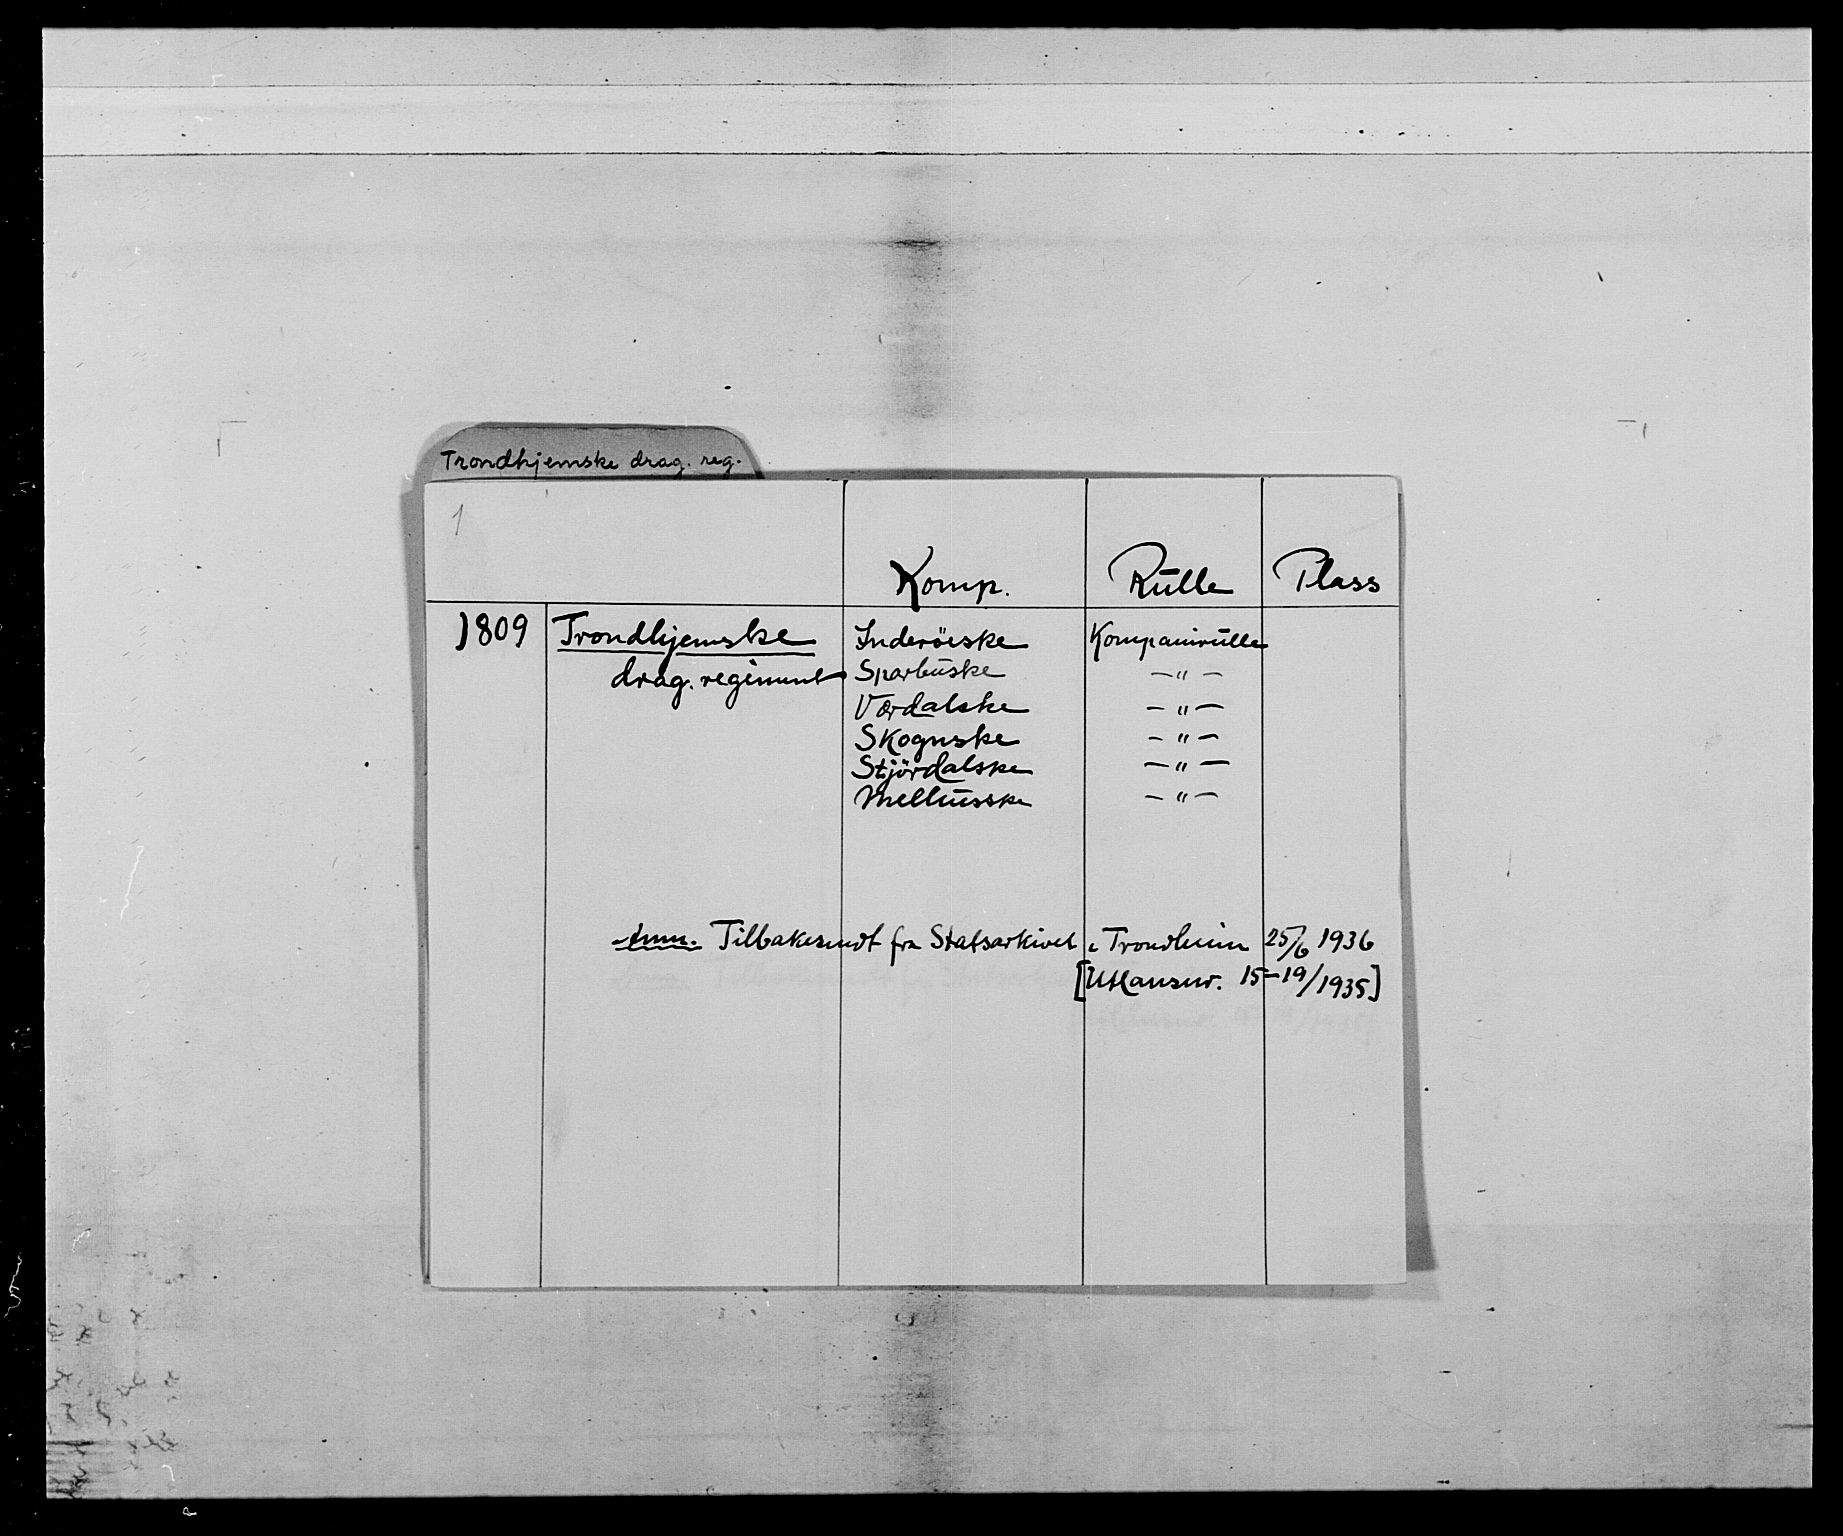 Trondhjemske drag. reg.
1
Komp. Rulle Plass
1809 Trondhjemske Inderöeske Kompanirulle
drag. regiment Sparbuske — " —
Værdalske — " —
Skognske — " —
Stjördalske — " —
Melhusske — " —
Anm. Tilbakesendt fra Statsarkivet i Trondheim 25/6 1936
[Utlånsnr. 15-19/1935]